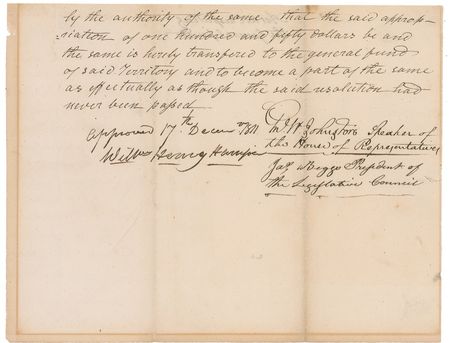 by the authority of the same that the said approp-
riation of one hundred and fifty dollars be and
the same is hereby transferred to the general fund
of said Territory and to become a part of the same
as effectually as though the said resolution had
never been passed
approved 17th Decem 1811
Willm Henry Harrison
Johnston Speaker of
the House of Representatives
Jas Beggs President of
the Legislative Council